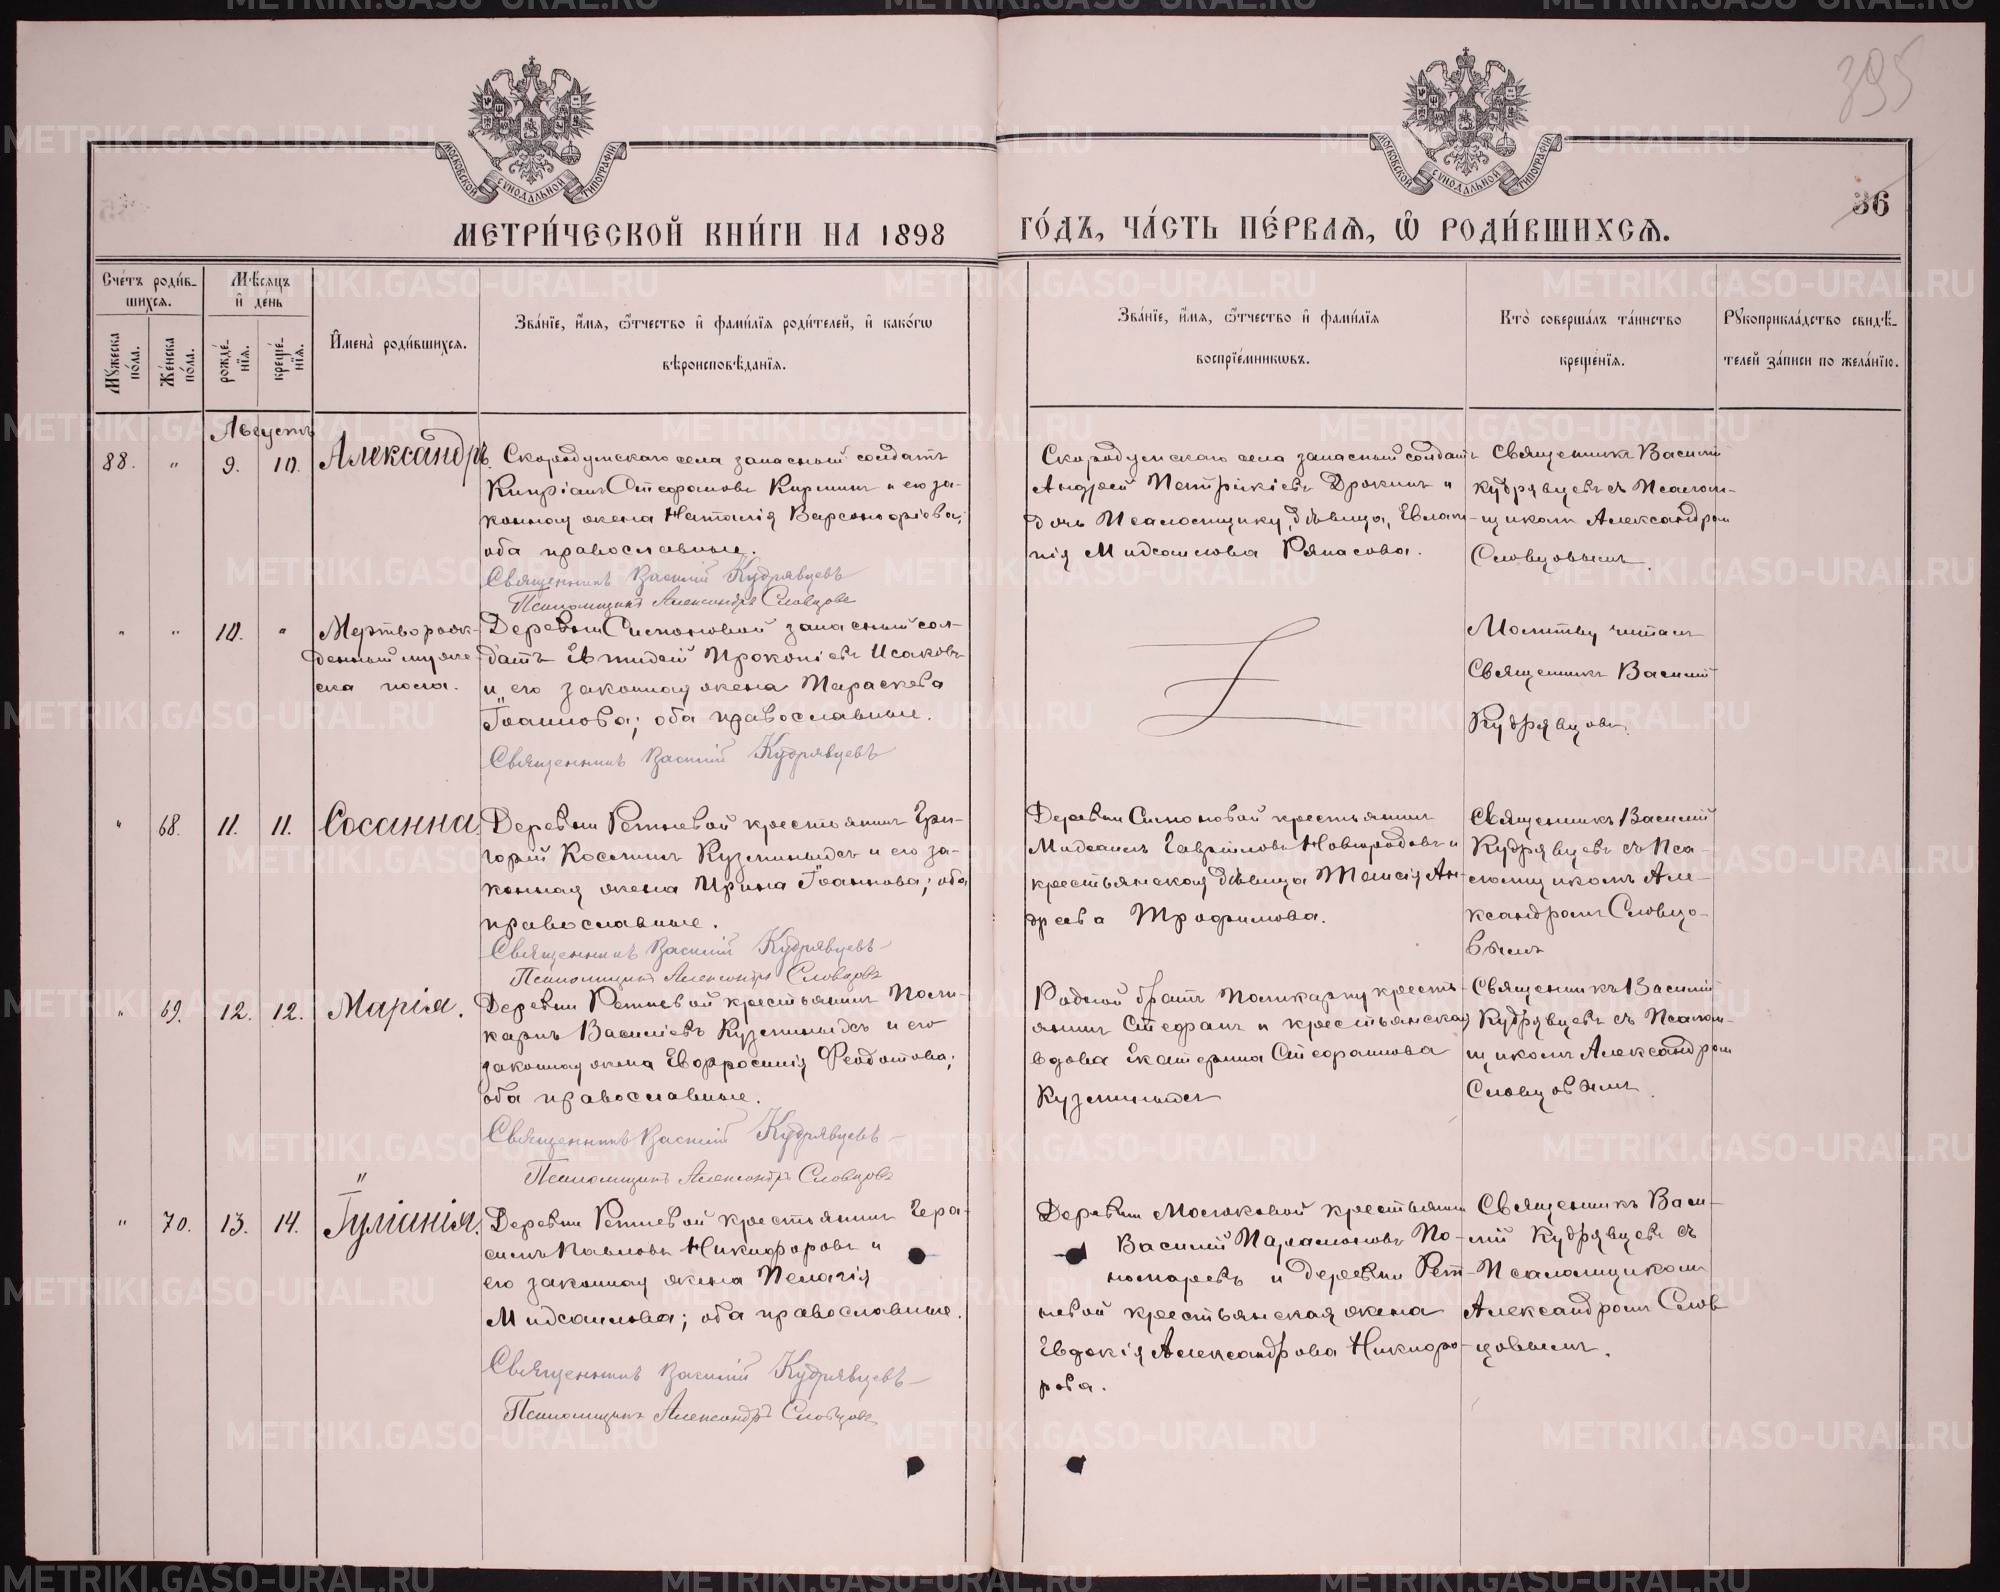 395
МОСКОВСКОЙ СѴНОДАЛЬНОЙ ТИПОГРАФІИ
МОСКОВСКОЙ СѴНОДАЛЬНОЙ ТИПОГРАФІИ
36
МЕТРИ́ЧЕСКОЙ КНИ́ГИ НА 1898
ГО́ДЪ, ЧА́СТЬ ПЕ́РВАЯ, Ѡ҆ РОДИ́ВШИХСЯ.
Сче́тъ роди́в-
шихся.
Мꙋ́жеска по́ла.
Же́нска по́ла.
Мѣ́сяцъ
и҆ де́нь
рожде́-нїя.
креще́-нїя.
И҆мена̀ роди́вшихся.
Зва́нїе, и҆́мя, ѻ҆́тчество и҆ фами́лїя роди́телей, и҆ како́гѡ
вѣроисповѣ́данїя.
Зва́нїе, и҆́мя, ѻ҆́тчество и҆ фами́лїя
воспрїе́мникѡвъ.
Кто̀ соверша́лъ та́инство
креще́нїя.
Рꙋкоприкла́дство свидѣ́-
телей за́писи по жела́нїю.
Августъ
88. " 9. 10. Александръ.
Скородумскаго села запасный солдатъ
Кипріанъ Стефановъ Кирминъ и его за-
конная жена Наталія Варсонофіева;
оба православные.
Священникъ Василій Кудрявцевъ
Псаломщикъ Александръ Словцовъ
Скородумскаго села запасный солдатъ
Андрей Патрікіевъ Дрокинъ и
дочь Псаломщику, дѣвица, Евлам-
пія Михаилова Ряпасова.
Священникъ Василій
Кудрявцевъ съ Псалом-
щикомъ Александром
Словцовымъ.
" " 10. " Мертворож-
денный муже-
ска пола.
Деревни Симоновой запасный сол-
датъ Евтихій Прокопіевъ Исаковъ
и его законная жена Параскева
Іоаннова; оба православные.
Священникъ Василій Кудрявцевъ
Молитву читалъ
Священникъ Василій
Кудрявцевъ.
" 68. 11. 11. Сосанна.
Деревни Ретневой крестьянинъ Гри-
горій Косминъ Кузминыхъ и его за-
конная жена Ирина Іоаннова; оба
православные.
Священникъ Василій Кудрявцевъ
Псаломщикъ Александръ Словцовъ
Деревни Симоновой крестьянинъ
Михаилъ Гавріиловъ Новгородовъ и
крестьянская дѣвица Таисія Ан-
дреева Трофимова.
Священникъ Василій
Кудрявцевъ съ Пса-
ломщикомъ Але-
ксандромъ Словцо-
вымъ
" 69. 12. 12. Марія.
Деревни Ретневой крестьянинъ Поли-
карпъ Василіевъ Кузминыхъ и его
законная жена Евфросинія Феодотова;
оба православные.
Священникъ Василій Кудрявцевъ
Псаломщикъ Александръ Словцовъ
Родной братъ Поликарпу кресть-
янинъ Стефанъ и крестьянская
вдова Екатерина Стефанова
Кузминыхъ
Священникъ Василій
Кудрявцевъ съ Псалом-
щикомъ Александром
Словцовымъ.
" 70. 13. 14. Іуліанія.
Деревни Ретневой крестьянинъ Гера-
симъ Павловъ Никифоровъ и
его законная жена Пелагія
Михаилова; оба православные.
Священникъ Василій Кудрявцевъ
Псаломщикъ Александръ Словцовъ
Деревни Молоковой крестьянин
Василій Парамоновъ По-
номаревъ и деревни Рет-
невой крестьянская жена
Евдокія Александрова Никифо-
рова.
Священникъ Васи-
лій Кудрявцевъ съ
Псаломщикомъ
Александромъ Слов
цовымъ.
METRIKI.GASO-URAL.RU